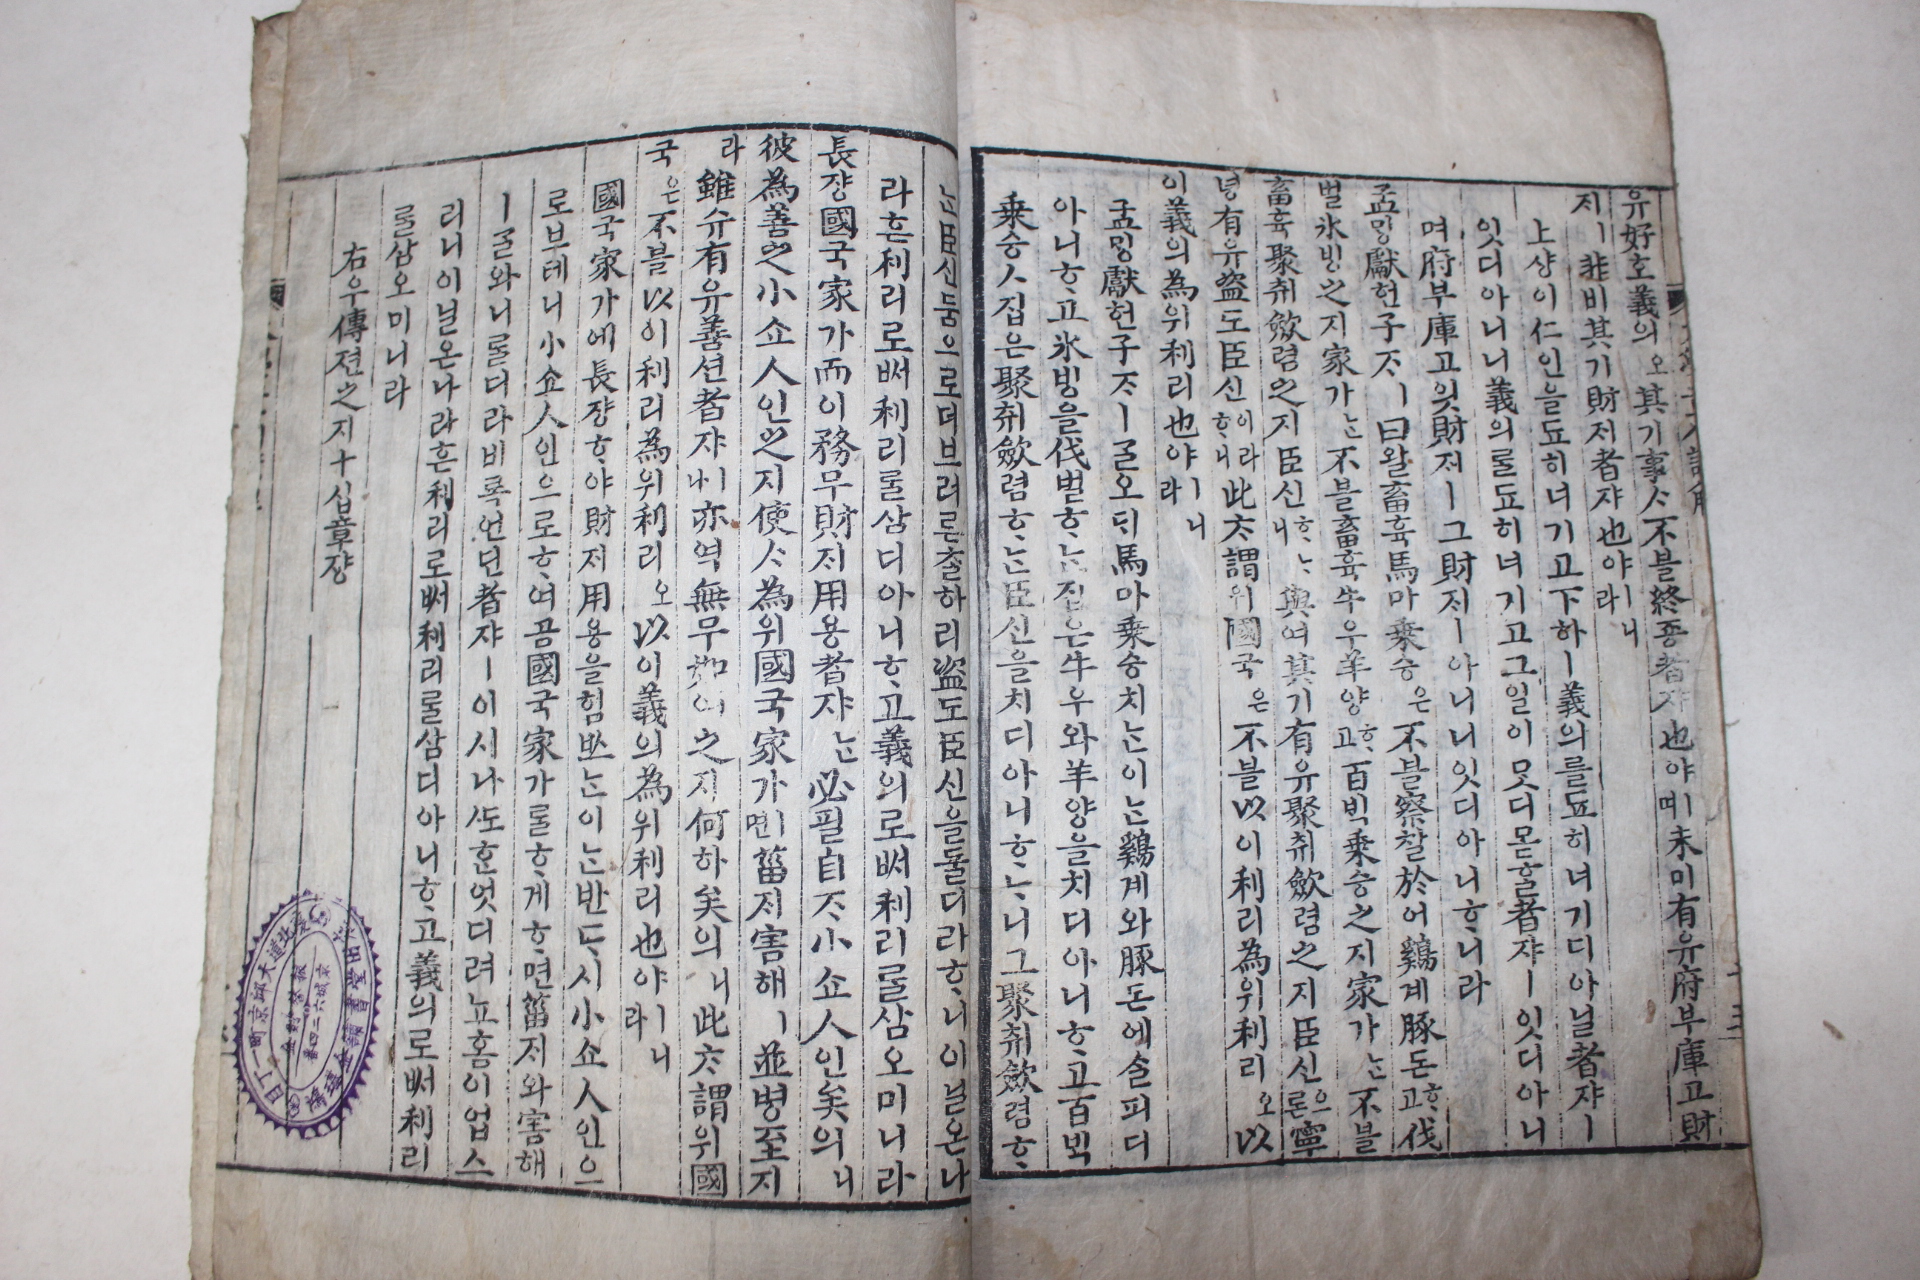 유好호義의오其기事ᄉ不블終죵者쟈也야ㅣ며未미有유府부庫고財
ᄌᆡㅣ非비其기財ᄌᆡ者쟈也야ㅣ니라
上샹이仁인을됴히너기고下하ㅣ義의를됴히녀기디아닐者쟈ㅣ
잇디아니니義의ᄅᆞᆯ됴히녀기고그일이ᄆᆞᆺ디몯ᄒᆞᆯ者쟈ㅣ잇디아니
며府부庫고읫財ᄌᆡㅣ그財ᄌᆡㅣ아니니잇디아니ᄒᆞ니라
孟ᄆᆡᆼ獻헌子ᄌᆞㅣ曰왈畜휵馬마乘승은不블察찰於어鷄계豚돈ᄒᆞ고伐
벌氷빙之지家가ᄂᆞᆫ不블畜휵牛우羊양ᄒᆞ고百ᄇᆡᆨ乘승之지家가ᄂᆞᆫ不블
畜휵聚취斂렴之지臣신ᄒᆞᄂᆞ니與여其기有유聚취斂렴之지臣신으론寧
녕有유盜도臣신이라ᄒᆞ니此ᄎᆞ謂위國국은不블以이利리為위利리오以
이義의為위利리也야ㅣ니라
孟ᄆᆡᆼ獻헌子ᄌᆞㅣᄀᆞᆯ오ᄃᆡ馬마乘승치ᄂᆞᆫ이ᄂᆞᆫ鷄계와豚돈에ᄉᆞᆯ피디
아니ᄒᆞ고氷빙을伐벌ᄒᆞᄂᆞᆫ집은牛우와羊양을치디아니ᄒᆞ고百ᄇᆡᆨ
乘승ㅅ집은聚취斂렴ᄒᆞᄂᆞᆫ臣신을치디아니ᄒᆞᄂᆞ니그聚취斂렴ᄒᆞ
ᄂᆞᆫ臣신둠으로더브러론ᄎᆞᆯ하리盜도臣신을둘디라ᄒᆞ니이닐온나
라흔利리로ᄡᅥ利리ᄅᆞᆯ삼디아니ᄒᆞ고義의로ᄡᅥ利리ᄅᆞᆯ삼오미니라
長쟝國국家가而이務무財ᄌᆡ用용者쟈ᄂᆞᆫ必필自ᄌᆞ小쇼人인矣의니
彼為善之小쇼人인之지使ᄉᆞ為위國국家가ㅣ면菑ᄌᆡ害해ㅣ並병至지
라雖슈有유善션者쟈ㅣ나亦역無무如여之지何하矣의니此ᄎᆞ謂위國
국은不블以이利리為위利리오以이義의為위利리也야ㅣ니라
國국家가에長쟝ᄒᆞ야財ᄌᆡ用용을힘ᄡᅳᄂᆞᆫ이ᄂᆞᆫ반ᄃᆞ시小쇼人인으
로브테니小쇼人인으로ᄒᆞ여곰國국家가ᄅᆞᆯᄒᆞ게ᄒᆞ면菑ᄌᆡ와害해
ㅣᄀᆞᆯ와니ᄅᆞᆯ디라비록언딘者쟈ㅣ이시나ᄯᅩᄒᆞᆫ엇디려뇨홈이업스
리니이닐온나라흔利리로ᄡᅥ利리ᄅᆞᆯ삼디아니ᄒᆞ고義의로ᄡᅥ利리
ᄅᆞᆯ삼오미니라
右우傳젼之지十십章쟝